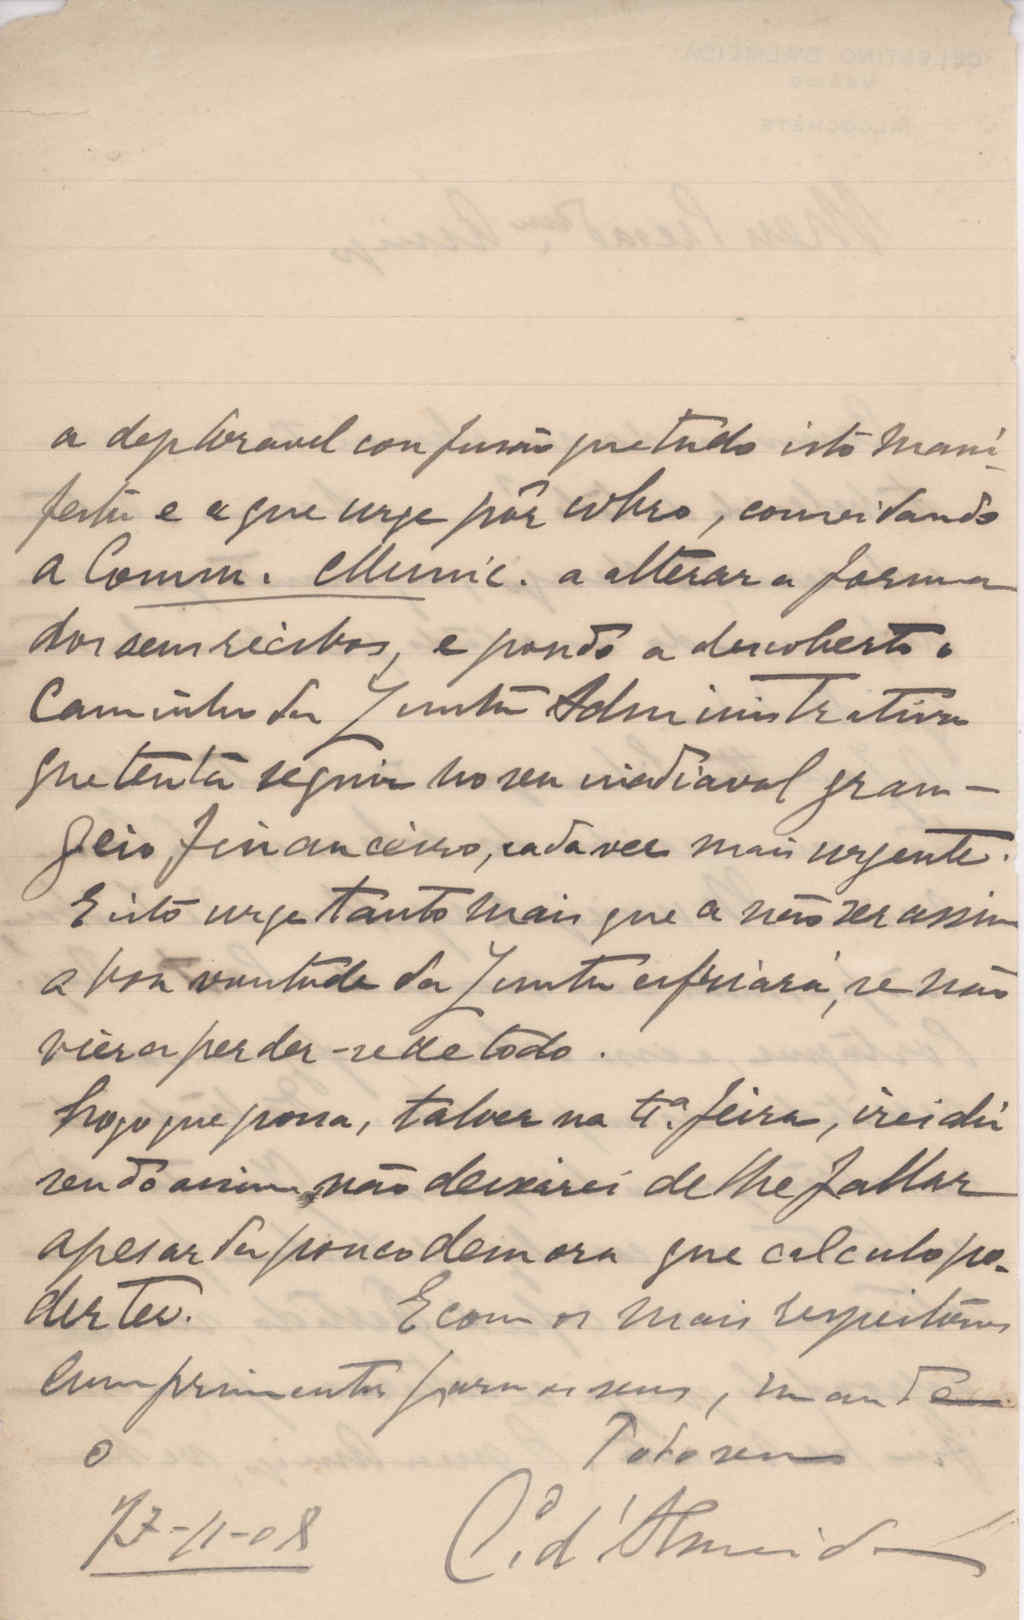 a deploravel confusão que tudo isto mani-
festa e a que urge pôr cobro, convidando
a Comm. Munic. a alterar a forma
dos seus recibos, e pondo a descoberto o
Caminho da Junta Administrativa
que tenta seguir no seu mediaval gran-
geio financeiro, cada vez mais urgente.
E isto urge tanto mais que a não ser assim
a bôa vontade da Junta esfriará, se não
vier a perder-se de todo.
Logo que possa, talvez na 4ª feira, irei ahi
sendo assim não deixarei de lhe fallar
apesar da pouco demora que calculo po-
der ter. E com os mais respeitosos
Cumprimentos para os seus, mande
o Todo seu
C.º d'Almeida
-11-08